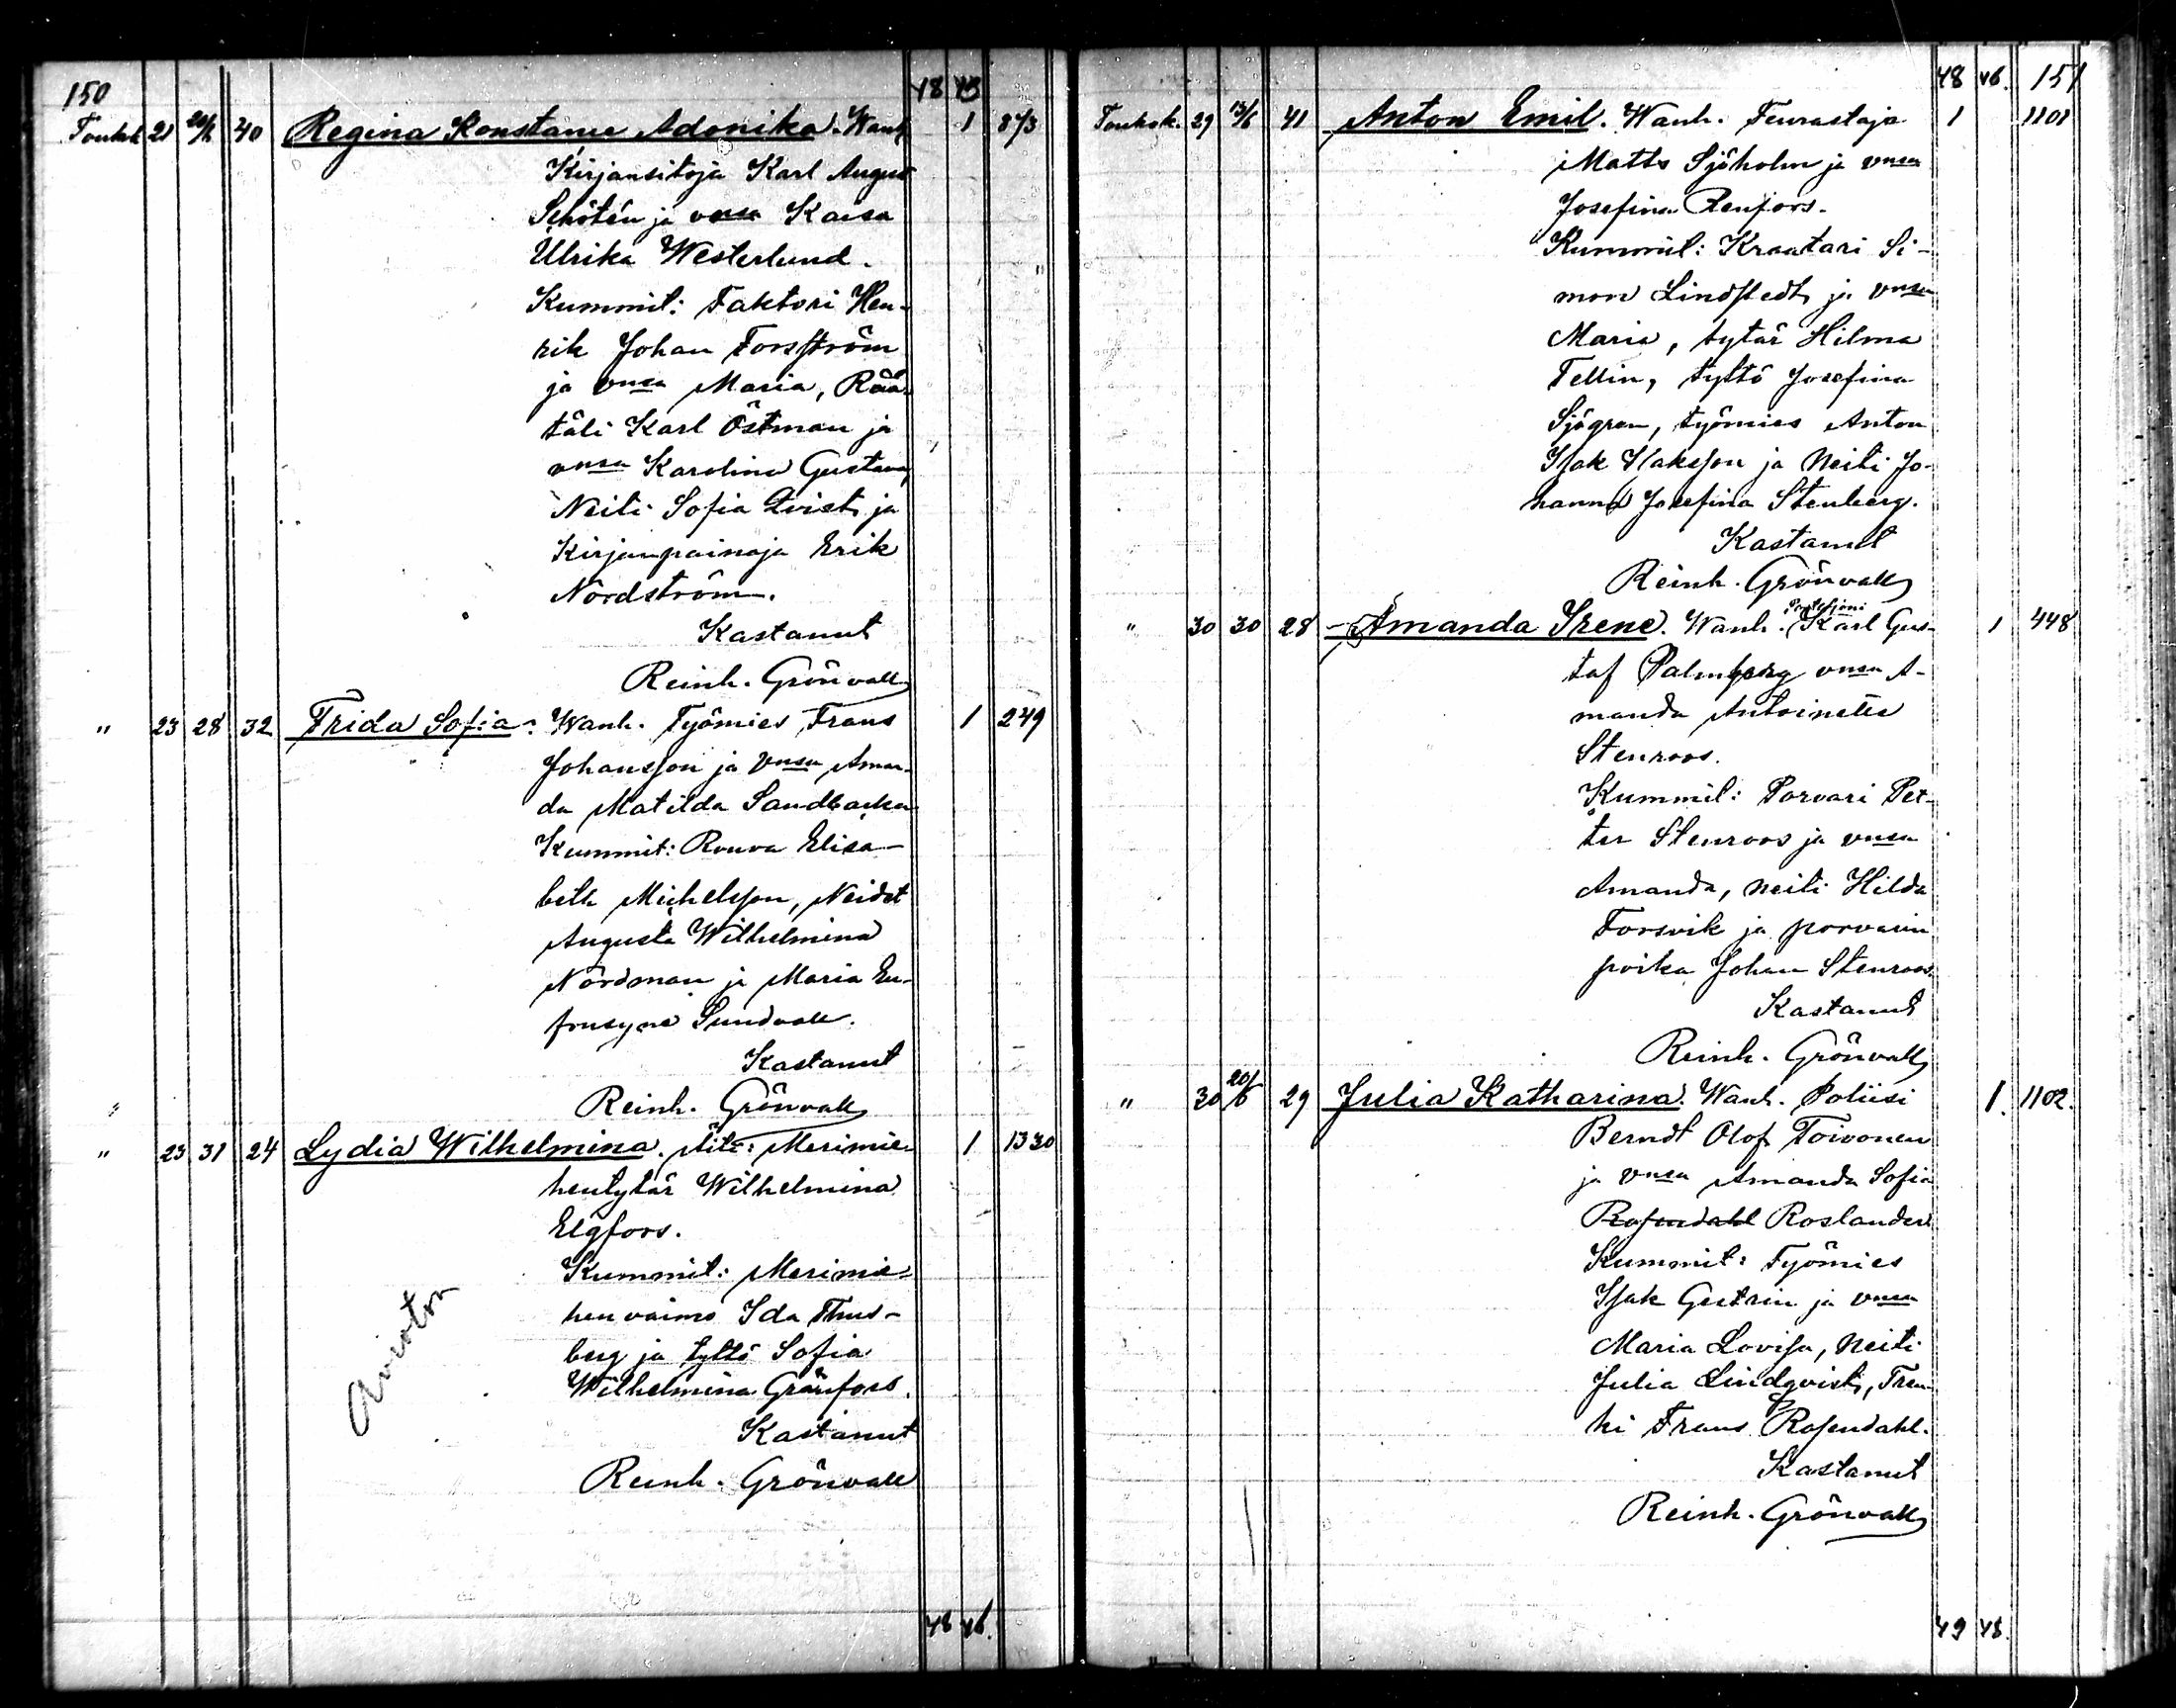 150
48 43
Toukok 21 20/6 40 Regina Konstance Adonika. Wanh. 1 873
Kirjansitoja Karl August
Schötén ja vmsa Kaisa
Ulrika Westerlund.
Kummit: Faktori Hen-
rik Johan Forsström
ja vmsa Maria, Rää-
täli Karl Östman ja
vmsa Karolina Gustava,
Neiti Sofia Qvist ja
Kirjanpainaja Erik
Nordström.
Kastanut
Reinh. Grönvall
" 23 28 32 Frida Sofia. Wanh. Työmies Frans 1 249
Johansson ja vmsa Aman-
da Matilda Sandbacka
Kummit: Rouva Elisa-
beth Michelsson, Neidet
Augusta Wilhelmina
Nordman ja Maria Eu-
frusyne Sundvall.
Kastanut
Reinh. Grönvall
" 23 31 24 Lydia Wilhelmina. Äiti: Merimie- 1 1330
hentytär Wilhelmina
Elgfors.
Kummit: Merimie-
hen vaimo Ida Thus-
berg ja tyttö Sofia
Wilhelmina Gränfors.
Avioton
Kastanut
Reinh. Grönvall
48 46.
48 46. 151
Toukok. 29 13/6 41 Anton Emil. Wanh. Teurastaja 1 1101
Matts Sjöholm ja vmsa
Josefina Renfors.
Kummit: Kraatari Si-
mon Lindstedt ja vmsa
Maria, tytär Hilma
Tellin, tyttö Josefina
Sjögren, työmies Anton
Isak Isaksson ja Neiti Jo-
hanna Josefina Stenberg.
Kastanut
Reinh. Grönvall
" 30 30 28 Amanda Irene. Wanh. Karl Gus- 1 448
taf Palmberg vmsa A-
manda Antoinette
Stenroos.
Kummit: Porvari Pet-
ter Stenroos ja vmsa
Amanda, neiti Hilda
Forsvik ja porvarin
poika Johan Stenroos.
Kastanut
Reinh. Grönvall
" 30 20/6 29 Julia Katharina. Wanh. Poliisi 1. 1102.
Berndt Olof Toivonen
ja vmsa Amanda Sofia
Rosendahl Roslander.
Kummit: Työmies
Isak Gestrin ja vmsa
Maria Lovisa, Neiti
Julia Lindqvist, Tren-
ki Frans Rosendahl.
Kastanut
Reinh. Grönvall
49 48.